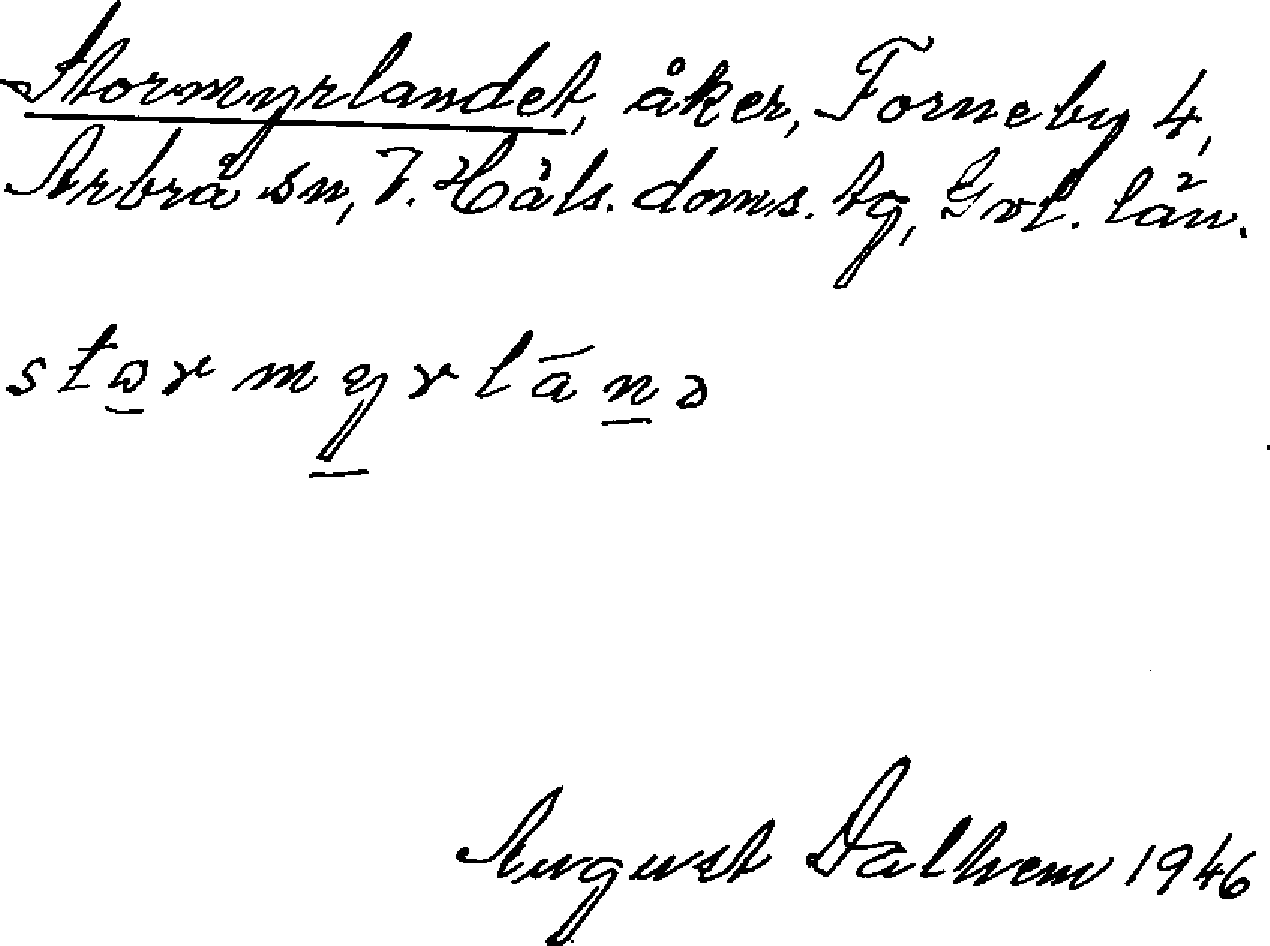 Stormyrlandet, åker, Forneby 4,
Arbrå sn, V. Häls. doms. tg, Gvl. län.
stormyrlānə
August Dalhem 1946